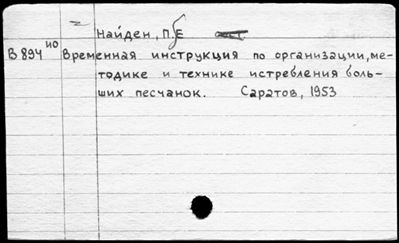 Найден, П.Е
В 894 ио Временная инструкция по организации, ме-
тодике и технике истребления боль-
ших песчанок. Саратов, 1953